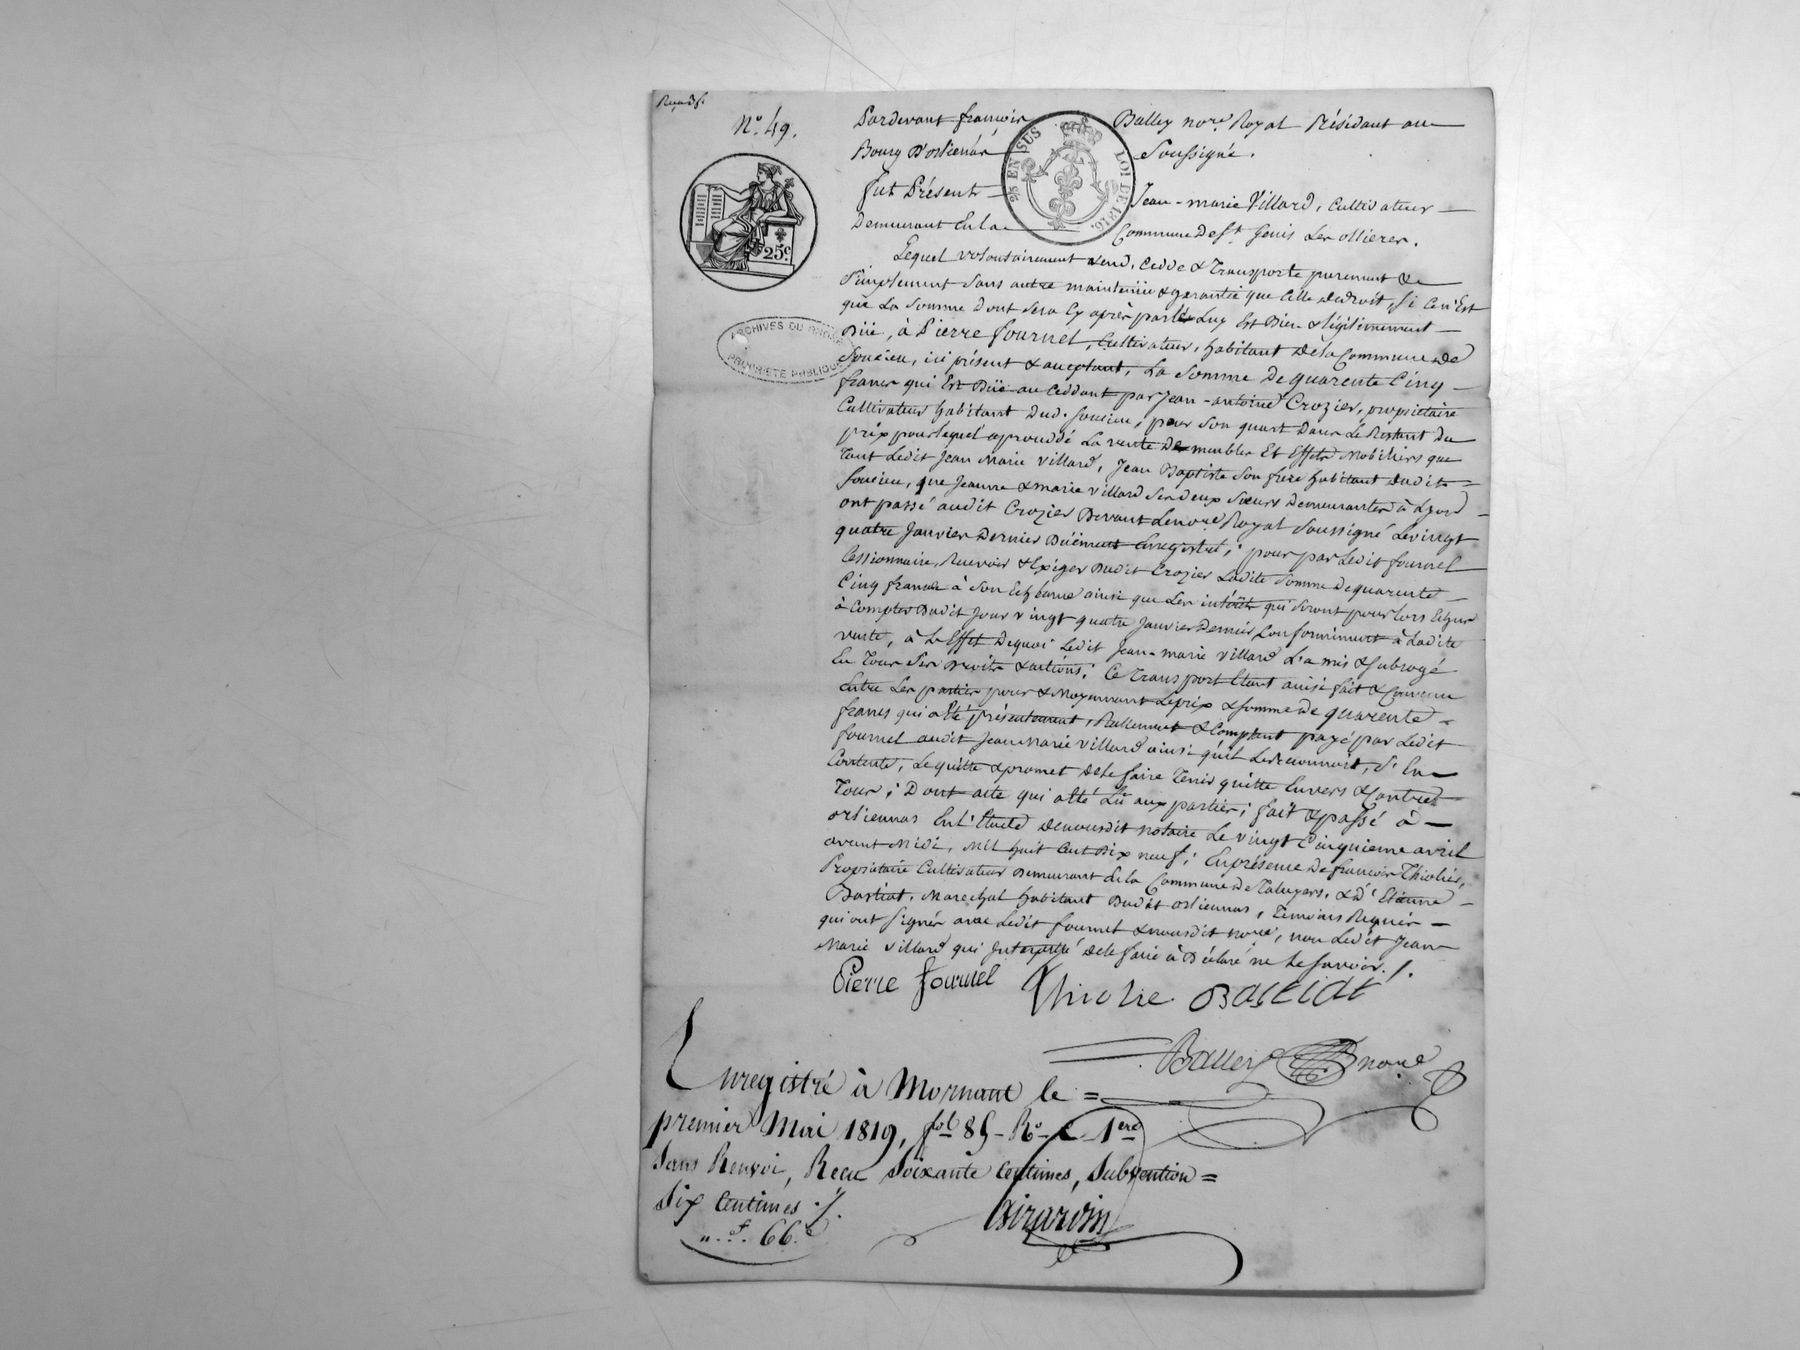 N.° 49.
Pardevant françois Balley no.re Royal Résidant au
Bourg D'orliénas Soussigné.
25 EN SUS LOI DE 1816.
25c.
fut Présent Jean-marie Villard, Cultivateur
Demeurant En la Commune de St. Genis Les ollieres.
Lequel volontairement vend, Cedde & Transporte purement &
Simplement Sans autre maintenüe & garantie que Celle de droit, Si Ce n'Est
que La Somme Dont Sera Cy après parlé Luy Est Bien & légitimement
Düe, à Pierre fournel, Cultivateur, habitant De la Commune de
Soucieu, ici présent & acceptant, La Somme De quarente Cinq
ARCHIVES DU RHÔNE
PROPRIETE PUBLIQUE
francs qui Est Düe au Ceddant par Jean-antoine Crozier, propriétaire
Cultivateur habitant Dud. Soucieu, pour Son quart Dans Le Restant Du
prix pour lequel a procédé La vente De meubles Et Effets Mobiliers que
Tant Ledit Jean Marie Villard, Jean Baptiste Son frere habitant Dudit
Soucieu, que Jeanne & marie Villard Ses Deux Sœurs Demeurantes à Lyon
ont passé audit Crozier Devant Le no.re Royal Soussigné Le vingt
quatre Janvier Dernier Düement Enregistré; pour par Ledit fournel
Cessionnaire, Recevoir & Exiger Dudit Crozier Ladite Somme De quarente
Cinq francs à Son Echéance ainsi que Les intérêts qui Seront pour Lors Echus
à Compter Dudit Jour vingt quatre Janvier Dernier Conformément à Ladite
vente, à L'Effet De quoi Ledit Jean-marie Villard L'a mis & Subrogé
En Tous Ses Droits & actions; Ce Transport Etant ainsi fait & Convenu
Entre Les parties pour & Moyennant Le prix & Somme De quarente
francs qui a Eté présentement, Réellement & Comptant payé par Ledit
fournel audit Jean Marie Villard ainsi qu'il Le Reconnoit, S'En
Contente, Le quitte & promet De Le faire Tenir quitte Envers & Contre
Tous; Dont acte qui a Eté Lû aux parties; fait & passé à
orliennas En L'Etude De nousdit notaire Le vingt Cinquieme avril
avant Midi, Mil huit Cent Dix neuf; En présence De françois Thiolier,
Propriétaire Cultivateur Demeurant De la Commune De Taluyers, & D'Etienne
Bastiat, Marechal habitant Dudit orliennas, Témoins Requis
qui ont Signés avec Ledit fournel & nousdit no.re, non Ledit Jean
Marie Villard qui Interpellé De Le faire à Déclaré ne Le Savoir./.
Pierre fournel Thiolie Bastiat
Balley no.re
Enregistré à Mornant le =
premier Mai 1819, fol. 85 R.o C. 1ere
Sans Renvoi, Recu Soixante Centimes, Subvention =
Six Centimes ./.
66.c
Girardin